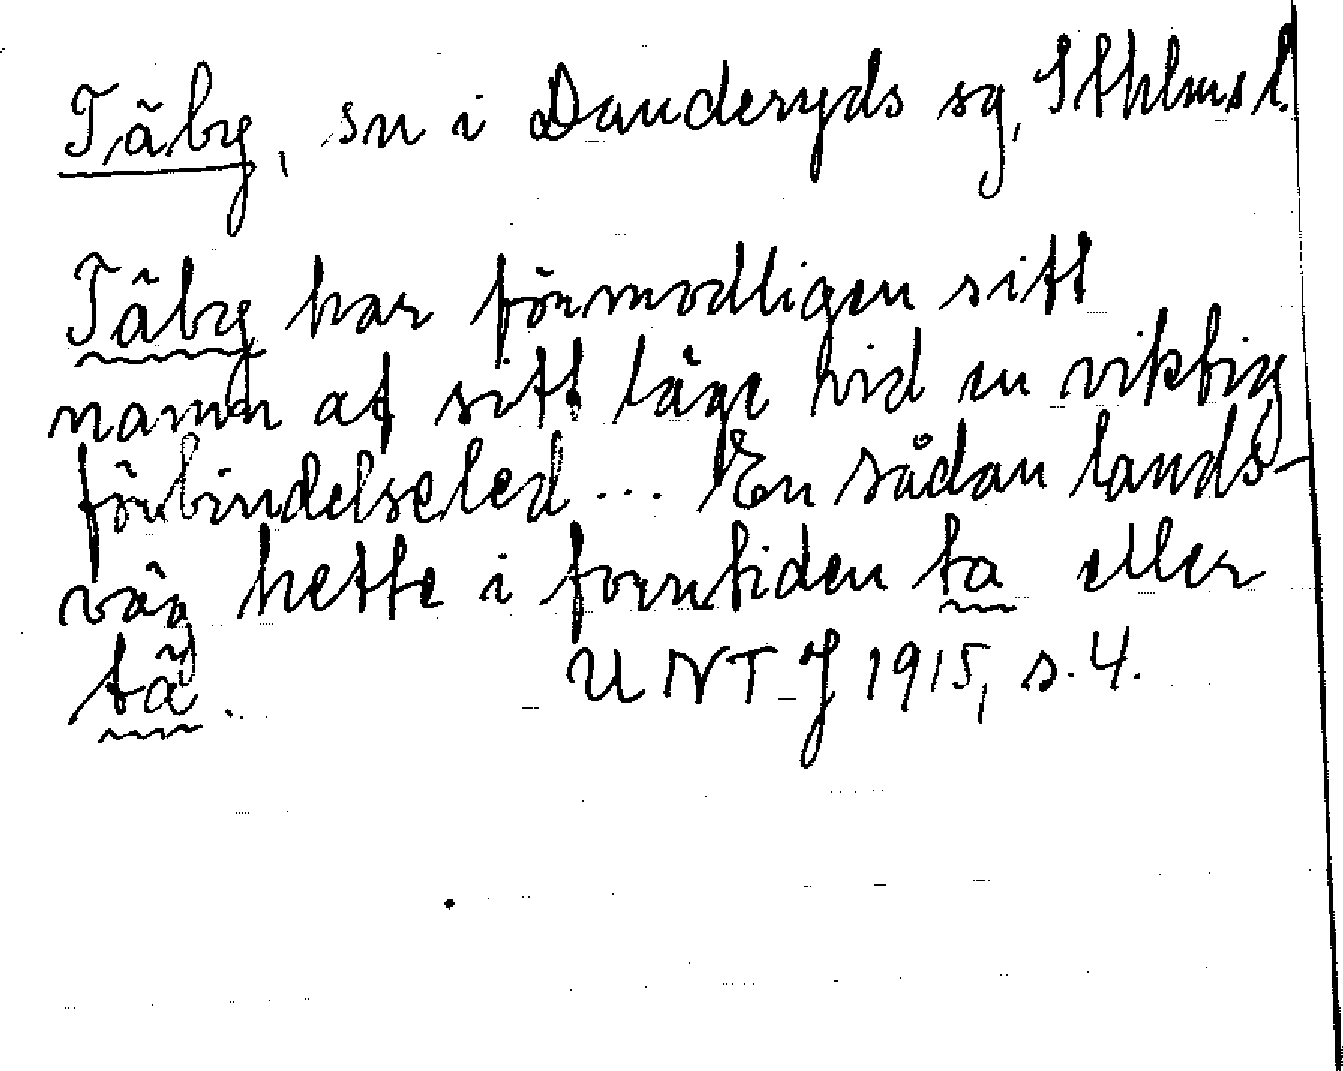 Täby, sn i Danderyds sg, Sthlms l.
Täby har förmodligen sitt
namn af sitt läge vid en viktig
förbindelseled... En sådan lands-
väg hette i forntiden ta eller
tä. UNT J 1915, s. 4.